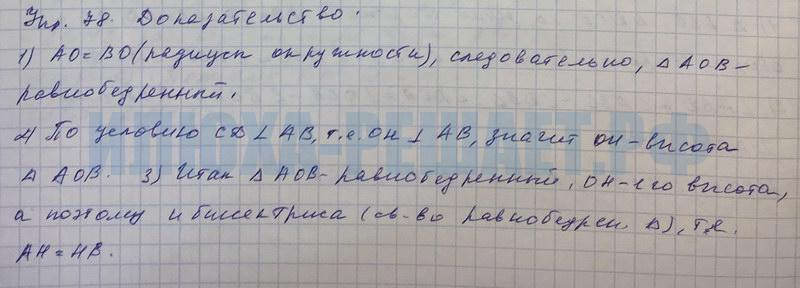 Упр. 78. Доказательство.
1) AO=BO (радиусы окружности), следовательно, △AOB-
равнобедренный.
2) По условию CD⊥AB, т.е. OH⊥AB, значит OH-высота
△AOB. 3) Итак △AOB-равнобедренный, OH-его высота,
а поэтому и биссектриса (св-во равнобедрен. △), т.е.
AH=HB.
ИНОХА-РЕШАЕТ.РФ